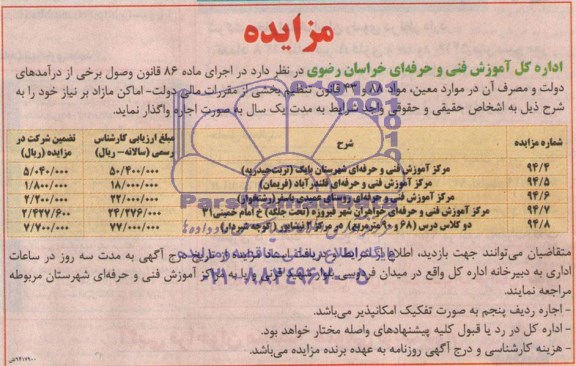 مزایده
اداره کل آموزش فنی و حرفه‌ای خراسان رضوی در نظر دارد در اجرای ماده ۸۶ قانون وصول برخی از درآمدهای
دولت و مصرف آن در موارد معین، مواد ۸۸ و ۴۳ قانون تنظیم بخشی از مقررات مالی دولت- اماکن مازاد بر نیاز خود را به
شرح ذیل به اشخاص حقیقی و حقوقی واجد شرایط به مدت یک سال به صورت اجاره واگذار نماید.
شماره مزایده شرح مبلغ ارزیابی کارشناس رسمی (سالانه- ریال) تضمین شرکت در مزایده (ریال)
۹۴/۴ مرکز آموزش فنی و حرفه‌ای شهرستان بایک (تربت‌حیدریه) ۵۰/۴۰۰/۰۰۰ ۵/۰۴۰/۰۰۰
۹۴/۵ مرکز آموزش فنی و حرفه‌ای قلندرآباد (فریمان) ۱۸/۰۰۰/۰۰۰ ۱/۸۰۰/۰۰۰
۹۴/۶ مرکز آموزش فنی و حرفه‌ای روستای عمیدی باسفر (رشتخوار) ۲۲/۰۰۰/۰۰۰ ۲/۲۰۰/۰۰۰
۹۴/۷ مرکز آموزش فنی و حرفه‌ای خواهران شهر فیروزه (تخت جلگه) خ امام خمینی ۳۱ ۲۴/۲۷۶/۰۰۰ ۲/۴۲۷/۶۰۰
۹۴/۸ دو کلاس درس (۶۸ و ۹۰ مترمربع) در مرکز ۲ نیشابور (کوچه شیردل) ۷۷/۰۰۰/۰۰۰ ۷/۷۰۰/۰۰۰
متقاضیان می‌توانند جهت بازدید، اطلاع از شرایط و دریافت اسناد مزایده از تاریخ درج آگهی به مدت سه روز در ساعات
اداری به دبیرخانه اداره کل واقع در میدان فردوسی، و یا به مراکز آموزش فنی و حرفه‌ای شهرستان مربوطه
مراجعه نمایند.
- اجاره ردیف پنجم به صورت تفکیک امکانپذیر می‌باشد.
- اداره کل در رد یا قبول کلیه پیشنهادهای واصله مختار خواهد بود.
- هزینه کارشناسی و درج آگهی روزنامه به عهده برنده مزایده می‌باشد.
ParsNamadData
پایگاه اطلاع رسانی مناقصه و مزایده
۰۲۱-۸۸۳۴۹۶۷۰-۵